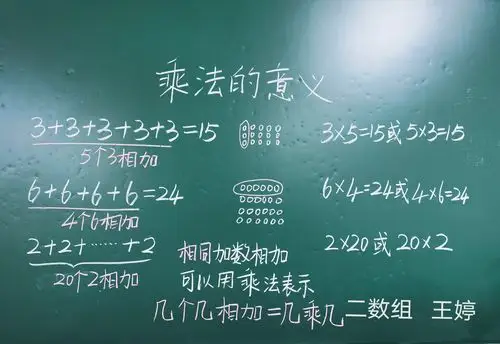 乘法的意义
3+3+3+3+3=15 3×5=15或5×3=15
5个3相加
6+6+6+6=24 6×4=24或4×6=24
4个6相加
2+2+……+2 2×20或20×2
20个2相加
相同加数相加
可以用乘法表示
几个几相加=几乘几
二数组 王婷